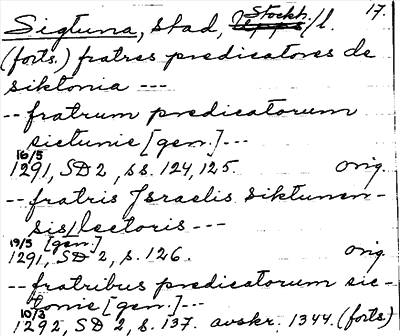 17.
Sigtuna, stad, Stockh./l.
(forts.) fratres predicatores de
siktonia ---
-- fratrum predicatorum
sictunie [gen.]---
16/5
1291, SD 2, ss. 124, 125. orig.
-- fratris Israelis siktunen-
sis/lectoris ---
19/5 [gen.]
1291, SD 2, s. 126. orig.
-- fratribus predicatorum sic-
tonie [gen.]---
10/3
1292, SD 2, s. 137. avskr. 1344. (forts.)